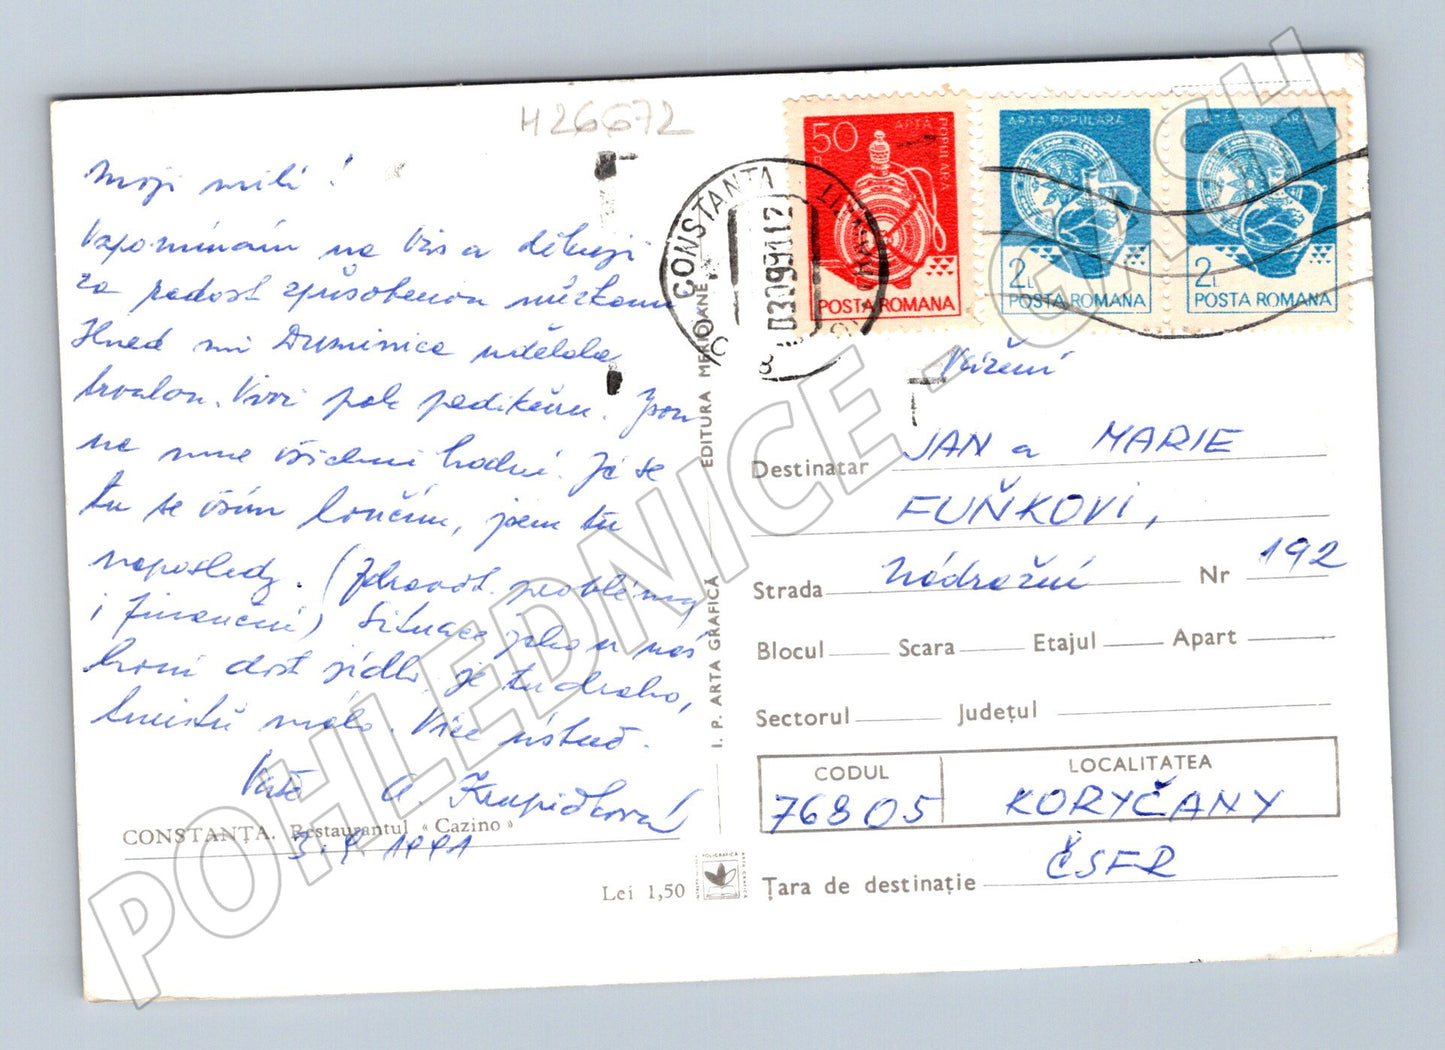 H26672
Moji milí!
Vzpomínám na Vás a děkuji
za radost způsobenou
Hned mi Duminica udělala
trvalou. pak pedikúru. Jsou
na mne všichni hodní. Já se
tu se vším loučím, jsem tu
naposledy. (Zdravot. problémy
i finanční) Situace jako u nás
dost jídla, je tu draho,
málo. Více ústně.
Vaše A. Krupičková
3.9.1991
CONSTANȚA. Restaurantul « Cazino »
Lei 1,50
EDITURA MERIDIANE
I. P. ARTA GRAFICĂ
POLIGRAFICA
ARTA GRAFICA
CONSTANȚA
030991112
50 B
ARTA POPULARĂ
POSTA ROMANA
ARTA POPULARĂ
2L
POSTA ROMANA
ARTA POPULARĂ
2L
POSTA ROMANA
Vážení
Destinatar JAN a MARIE
FUŇKOVI,
Strada Nádražní Nr 192
Blocul Scara Etajul Apart
Sectorul Județul
CODUL LOCALITATEA
76805 KORYČANY
Țara de destinație ČSFR
POHLEDNICE - GASH